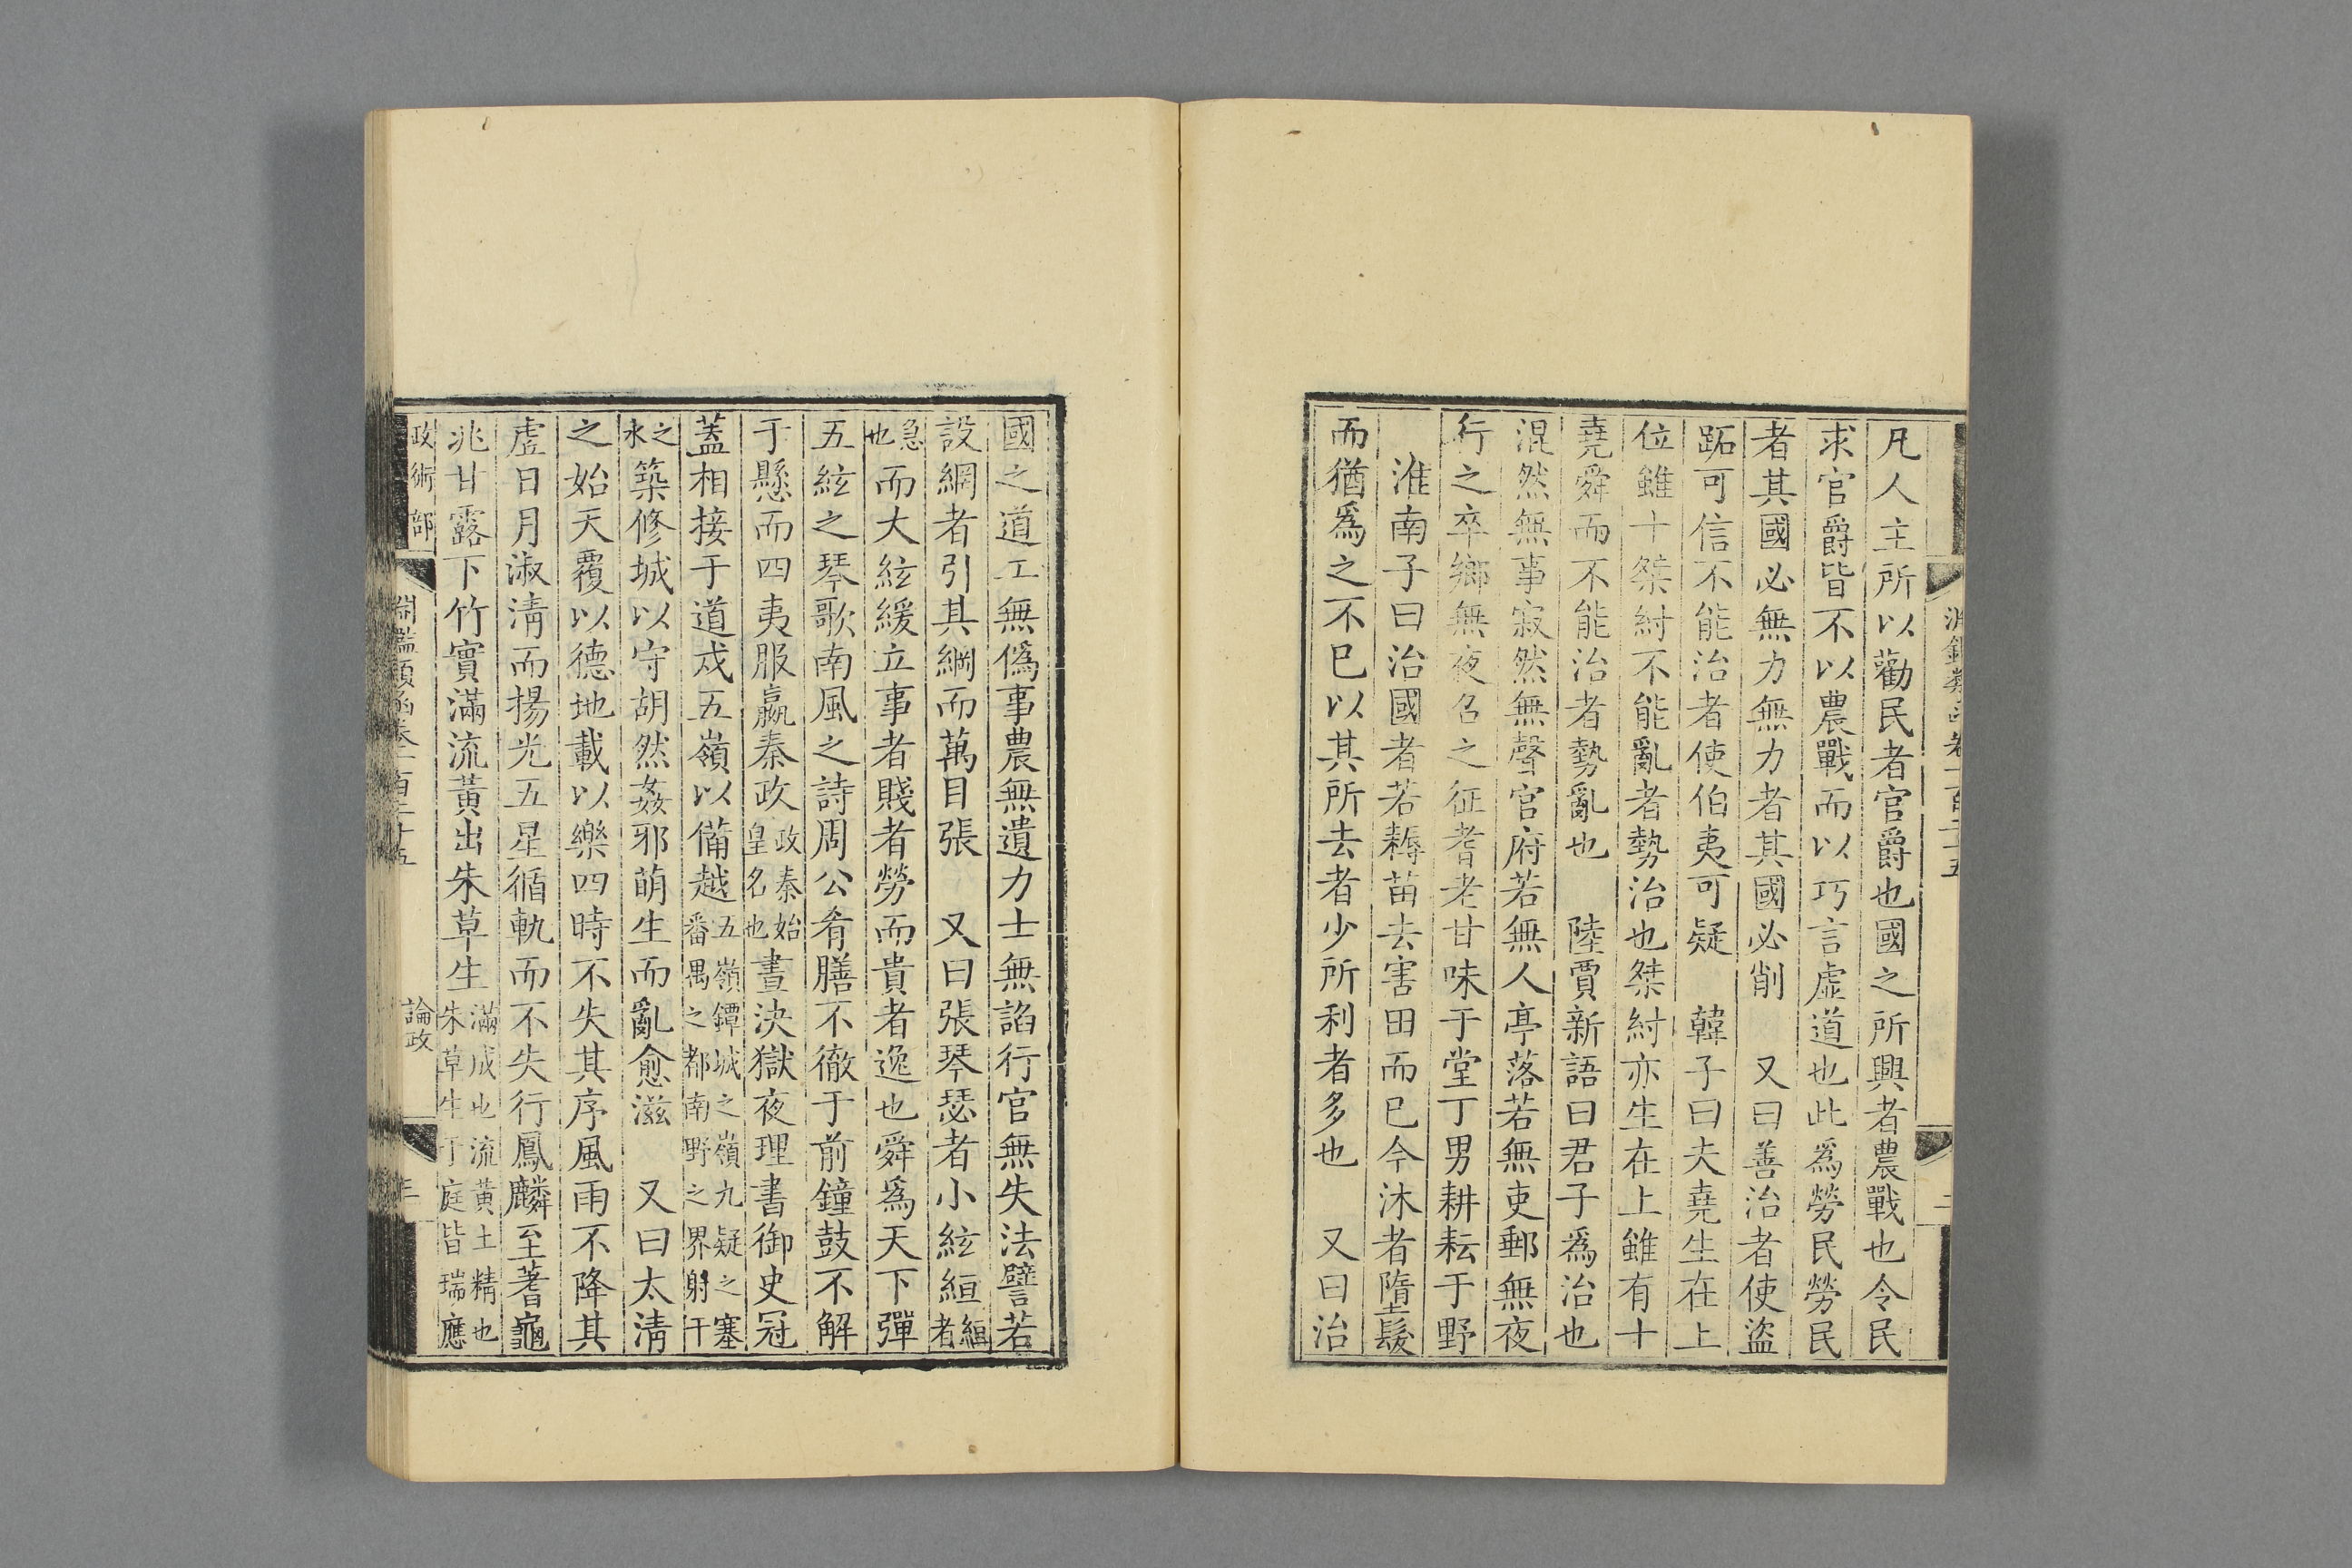 淵鑑類函卷一百二十五
二
凡人主所以勸民者官爵也國之所興者農戰也今民
求官爵皆不以農戰而以巧言虛道也此爲勞民勞民
者其國必無力無力者其國必削 又曰善治者使盜
跖可信不能治者使伯夷可疑 韓子曰夫堯生在上
位雖十桀紂不能亂者勢治也桀紂亦生在上雖有十
堯舜而不能治者勢亂也 陸賈新語曰君子爲治也
混然無事寂然無聲官府若無人亭落若無吏郵無夜
行之卒鄉無夜召之征耆老甘味于堂丁男耕耘于野
淮南子曰治國者若耨苗去害田而已今沐者墮髮
而猶爲之不已以其所去者少所利者多也 又曰治
國之道工無僞事農無遺力士無謟行官無失法譬若
設網者引其綱而萬目張 又曰張琴瑟者小絃絙絙者
急也而大絃緩立事者賤者勞而貴者逸也舜爲天下彈
五絃之琴歌南風之詩周公肴膳不徹于前鐘鼓不解
于懸而四夷服嬴秦政政秦始皇名也晝決獄夜理書御史冠
蓋相接于道戍五嶺以備越五嶺鐔城之嶺九疑之塞番禺之都南野之界射干
之水築修城以守胡然姦邪萌生而亂愈滋 又曰太淸
之始天覆以德地載以樂四時不失其序風雨不降其
虐日月淑淸而揚光五星循軌而不失行鳳麟至蓍龜
兆甘露下竹實滿流黃出朱草生滿成也流黃土精也朱草生于庭皆瑞應
政術部
淵鑑類函卷一百二十五
論政
三